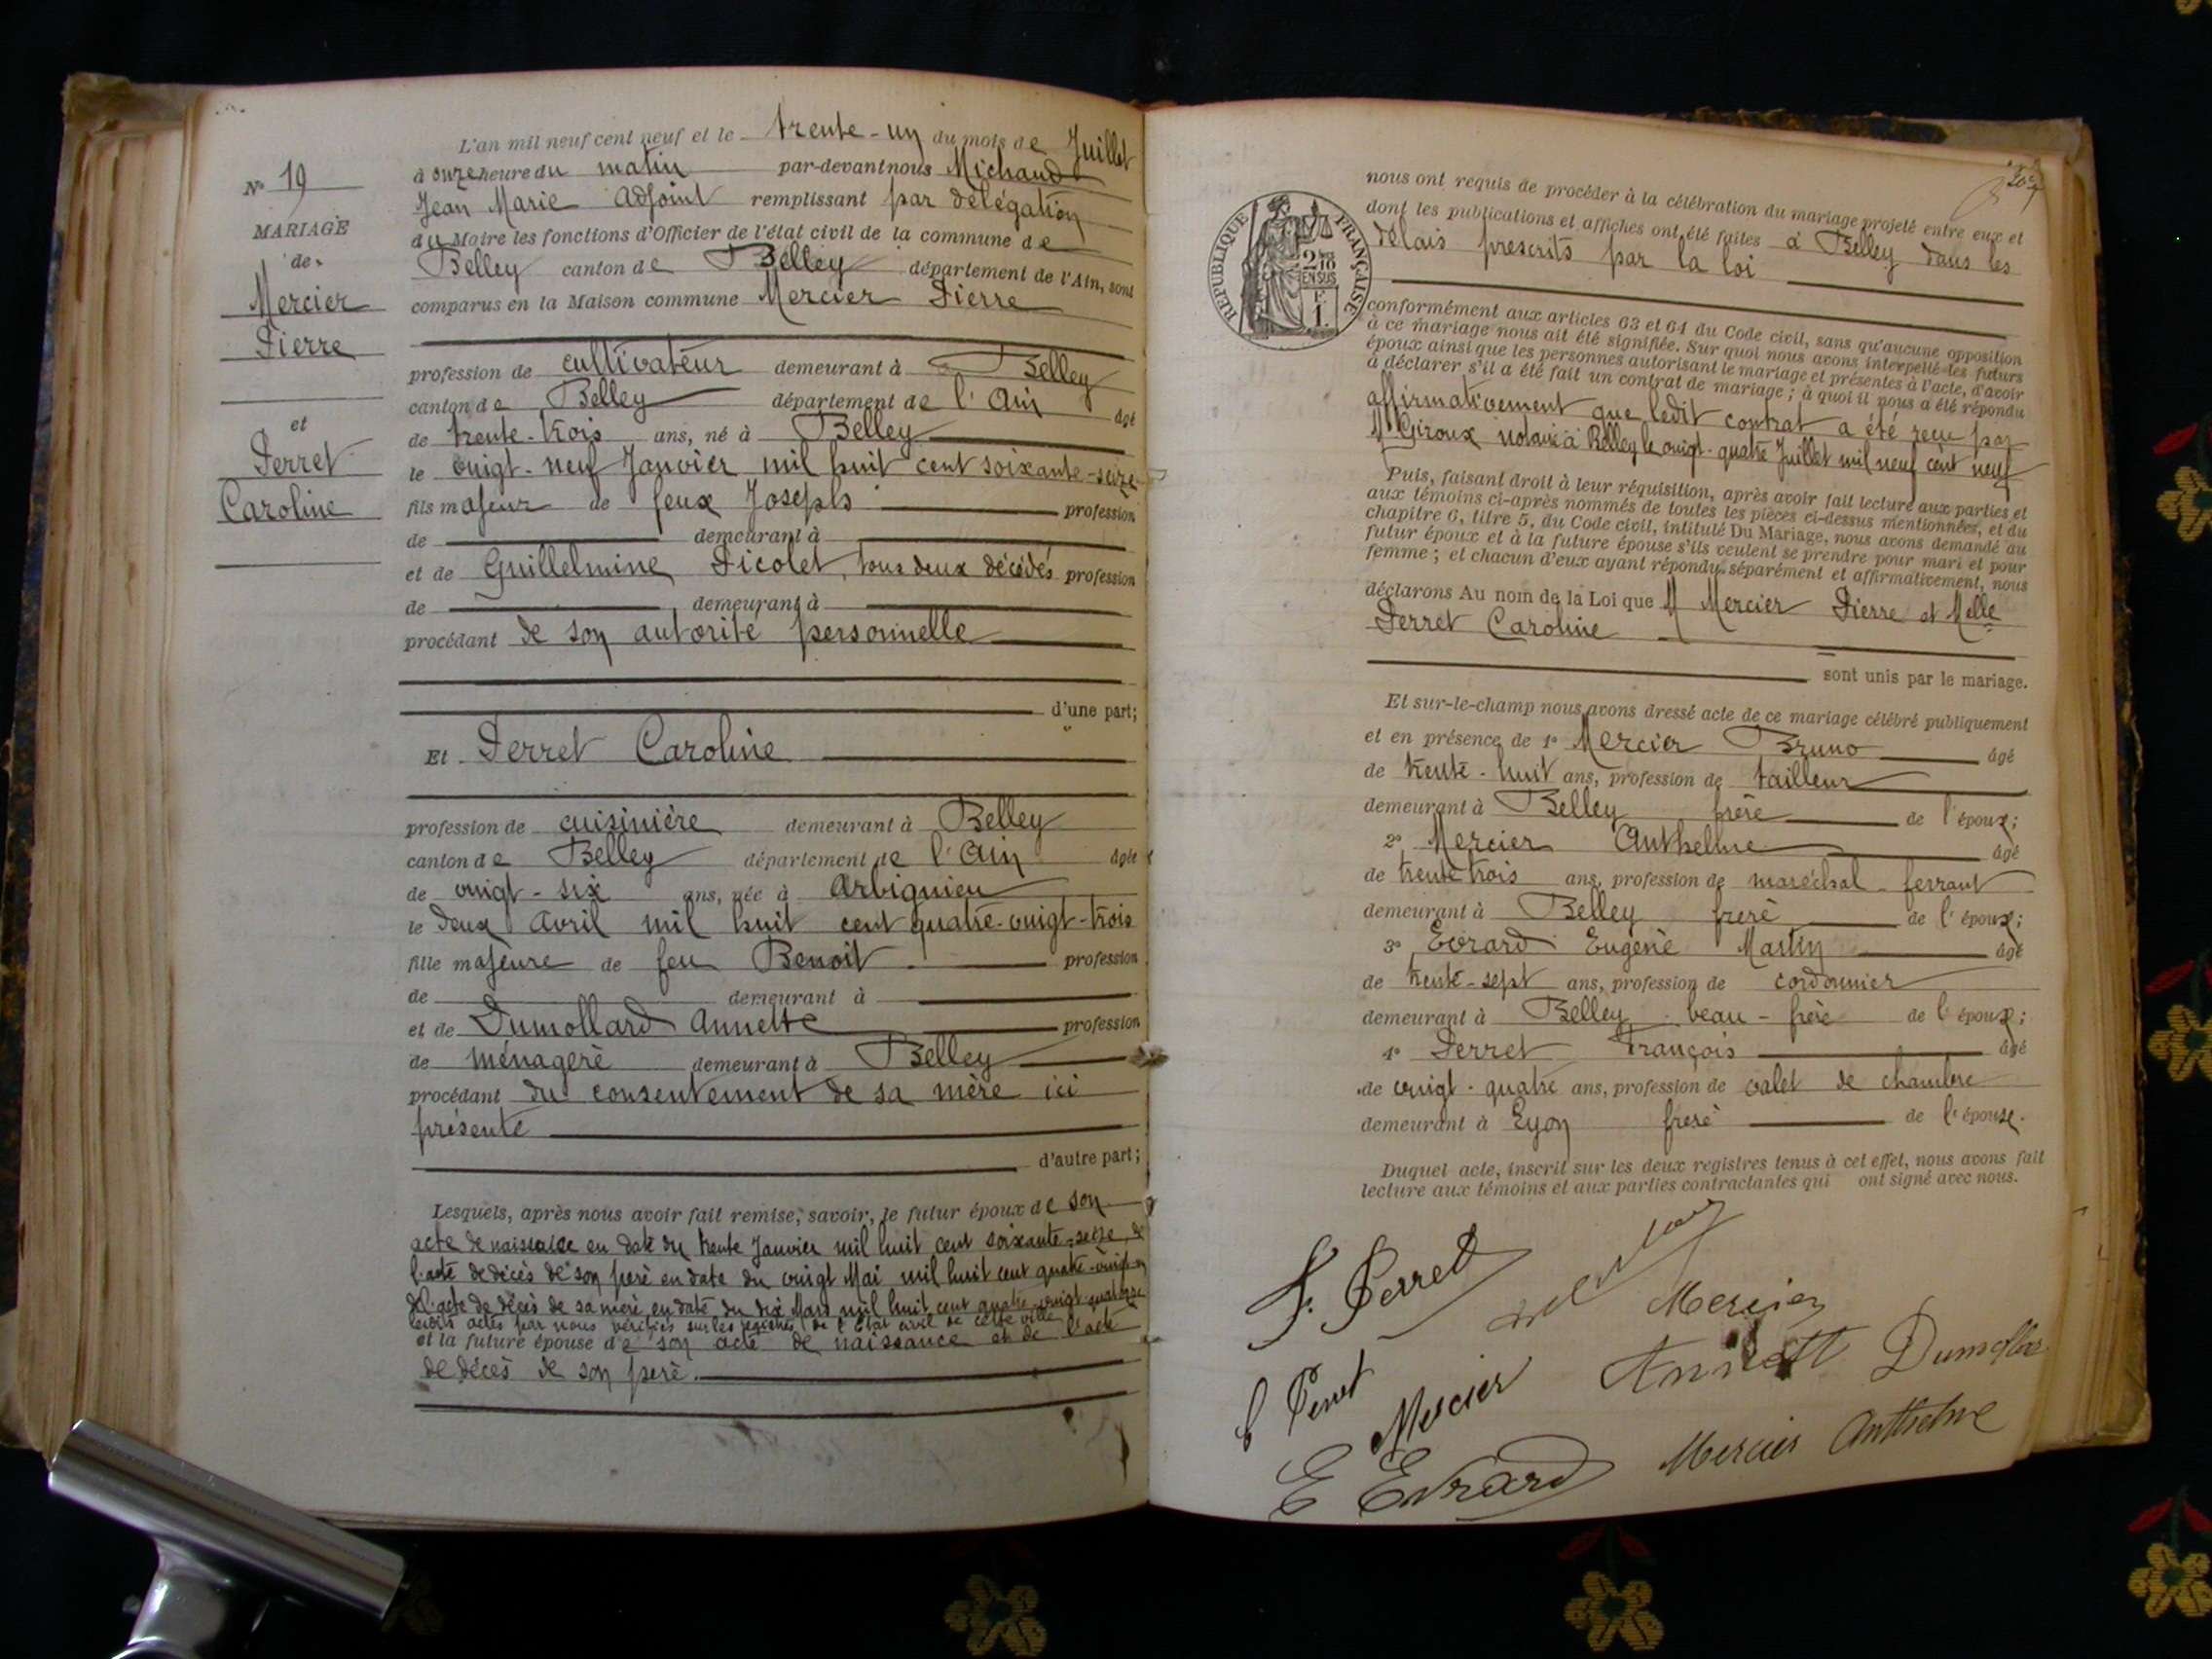 N° 19
MARIAGE
de
Mercier
Pierre
et
Perret
Caroline
L'an mil neuf cent neuf et le trente-un du mois de Juillet
à onze heure du matin par-devant nous Michaud
Jean Marie Adjoint remplissant par délégation
du Maire les fonctions d'Officier de l'état civil de la commune de
Belley canton de Belley département de l'Ain, sont
comparus en la Maison commune Mercier Pierre
profession de cultivateur demeurant à Belley
canton de Belley département de l'Ain âgé
de trente-trois ans, né à Belley
le vingt-neuf Janvier mil huit cent soixante-seize
fils majeur de feux Joseph profession
de demeurant à
et de Guillelmine Picolet, tous deux décédés profession
de demeurant à
procédant de son autorité personnelle
d'une part;
Et Perret Caroline
profession de cuisinière demeurant à Belley
canton de Belley département de l'Ain âgée
de vingt-six ans, née à Arbignieu
le deux Avril mil huit cent quatre-vingt-trois
fille majeure de feu Benoit profession
de demeurant à
et de Dumollard Annette profession
de ménagère demeurant à Belley
procédant du consentement de sa mère ici
présente
d'autre part;
Lesquels, après nous avoir fait remise, savoir, le futur époux de son
acte de naissance en date du trente Janvier mil huit cent soixante-seize, de
l'acte de décès de son père en date du vingt Mai mil huit cent quatre-vingt-
de l'acte de décès de sa mère en date du dix Mars mil huit cent quatre-vingt-quatorze
lesdits actes par nous vérifiés sur les registres de l'Etat civil de cette ville
et la future épouse de son acte de naissance et de l'acte
de décès de son père.
nous ont requis de procéder à la célébration du mariage projeté entre eux et
dont les publications et affiches ont été faites à Belley dans les
délais prescrits par la loi
RÉPUBLIQUE FRANÇAISE
2/10
EN SUS
1F.
conformément aux articles 63 et 64 du Code civil, sans qu'aucune opposition
à ce mariage nous ait été signifiée. Sur quoi nous avons interpellé les futurs
époux ainsi que les personnes autorisant le mariage et présentes à l'acte, d'avoir
à déclarer s'il a été fait un contrat de mariage; à quoi il nous a été répondu
affirmativement que ledit contrat a été reçu par
Me Giroux notaire à Belley le vingt-quatre Juillet mil neuf cent neuf
Puis, faisant droit à leur réquisition, après avoir fait lecture aux parties et
aux témoins ci-après nommés de toutes les pièces ci-dessus mentionnées, et du
chapitre 6, titre 5, du Code civil, intitulé Du Mariage, nous avons demandé au
futur époux et à la future épouse s'ils veulent se prendre pour mari et pour
femme; et chacun d'eux ayant répondu séparément et affirmativement, nous
déclarons Au nom de la Loi que M Mercier Pierre et Melle
Perret Caroline
sont unis par le mariage.
Et sur-le-champ nous avons dressé acte de ce mariage célébré publiquement
et en présence de 1° Mercier Bruno âgé
de trente-huit ans, profession de tailleur
demeurant à Belley frère de l'époux;
2° Mercier Anthelme âgé
de trente trois ans, profession de maréchal-ferrant
demeurant à Belley frère de l'époux;
3° Evrard Eugène Martin âgé
de trente-sept ans, profession de cordonnier
demeurant à Belley beau-frère de l'époux;
4° Perret François âgé
de vingt-quatre ans, profession de valet de chambre
demeurant à Lyon frère de l'épouse.
Duquel acte, inscrit sur les deux registres tenus à cet effet, nous avons fait
lecture aux témoins et aux parties contractantes qui ont signé avec nous.
F. Perret
Mercier
C Perret
Mercier
Annett Dumollar
E Evrard
Mercier Anthelme